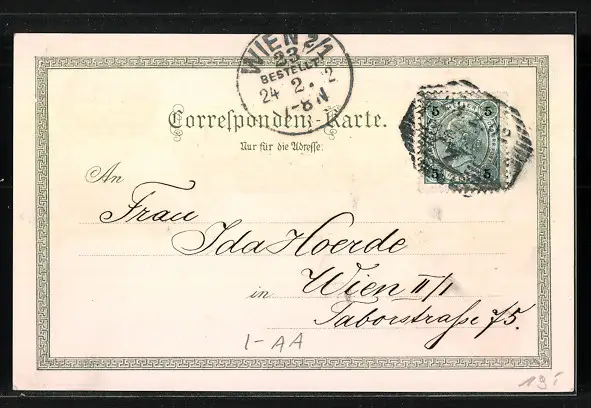 WIEN 2/1
23
BESTELLT
24 2 2
7-8 N
Correspondenz-Karte.
Nur für die Adresse.
5 5
5 5
An
Frau
Ida Hoerde
in Wien II/1
Taborstraße 75.
1-AA